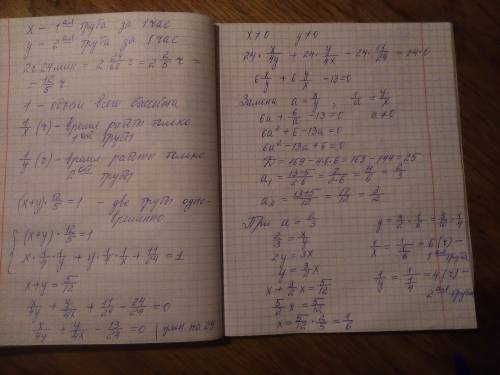 x – 1ая труба за 1 час
y – 2ая труба за 1 час
2ч 24 мин = 2 24/60 ч = 2 2/5 ч =
= 12/5 ч
1 – объем всего бассейна
1/x (ч) – время работы только
1ой трубы
1/y (ч) – время работы только
2ой трубы
(x+y)·12/5=1 – две трубы одно-
временно
{ (x+y)·12/5=1
x·1/4·1/y + y·1/4·1/x + 11/24 = 1
x+y=5/12
x/4y + y/4x + 11/24 – 24/24 = 0
x/4y + y/4x – 13/24 = 0 | умн. на 24
x≠0 y≠0
24·x/4y + 24·y/4x – 24·13/24 = 24·0
6x/y + 6y/x – 13=0
Замена a=x/y, 1/a=y/x
6a + 6/a – 13=0 a≠0
6a²+6–13a=0
6a²–13a+6=0
D=169–4·6·6=169–144=25
a₁ = 13–5/2·6 = 8/2·6 = 4/6 = 2/3
a₂ = 13+5/12 = 18/12 = 3/2
При a=2/3
2/3 = x/y
2y=3x
y=3/2 x
x+3/2 x=5/12
5/2 x=5/12
x=5/12·2/5=1/6
y=3/2·1/6=3/12=1/4
1/x = 1/1/6 = 6 (ч) –
1ая труба
1/y = 1/1/4 = 4 (ч) –
2ая труба